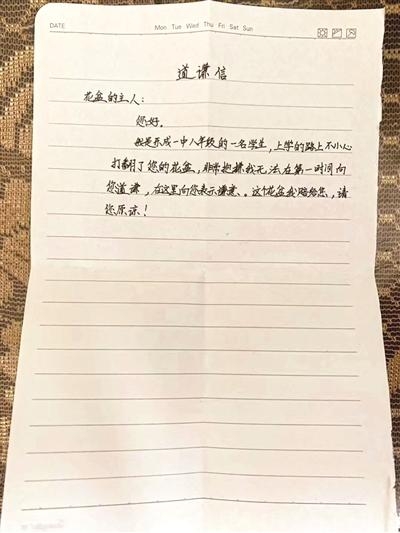 DATE Mon Tue Wed Thu Fri Sat Sun
道谦信
花盆的主人：
您好。
我是东成一中八年级的一名学生，上学的路上不小心
打翻了您的花盆，非常抱谦我无法在第一时间向
您道谦，在这里向您表示谦意。这个花盆我赔给您，请
您原谅！